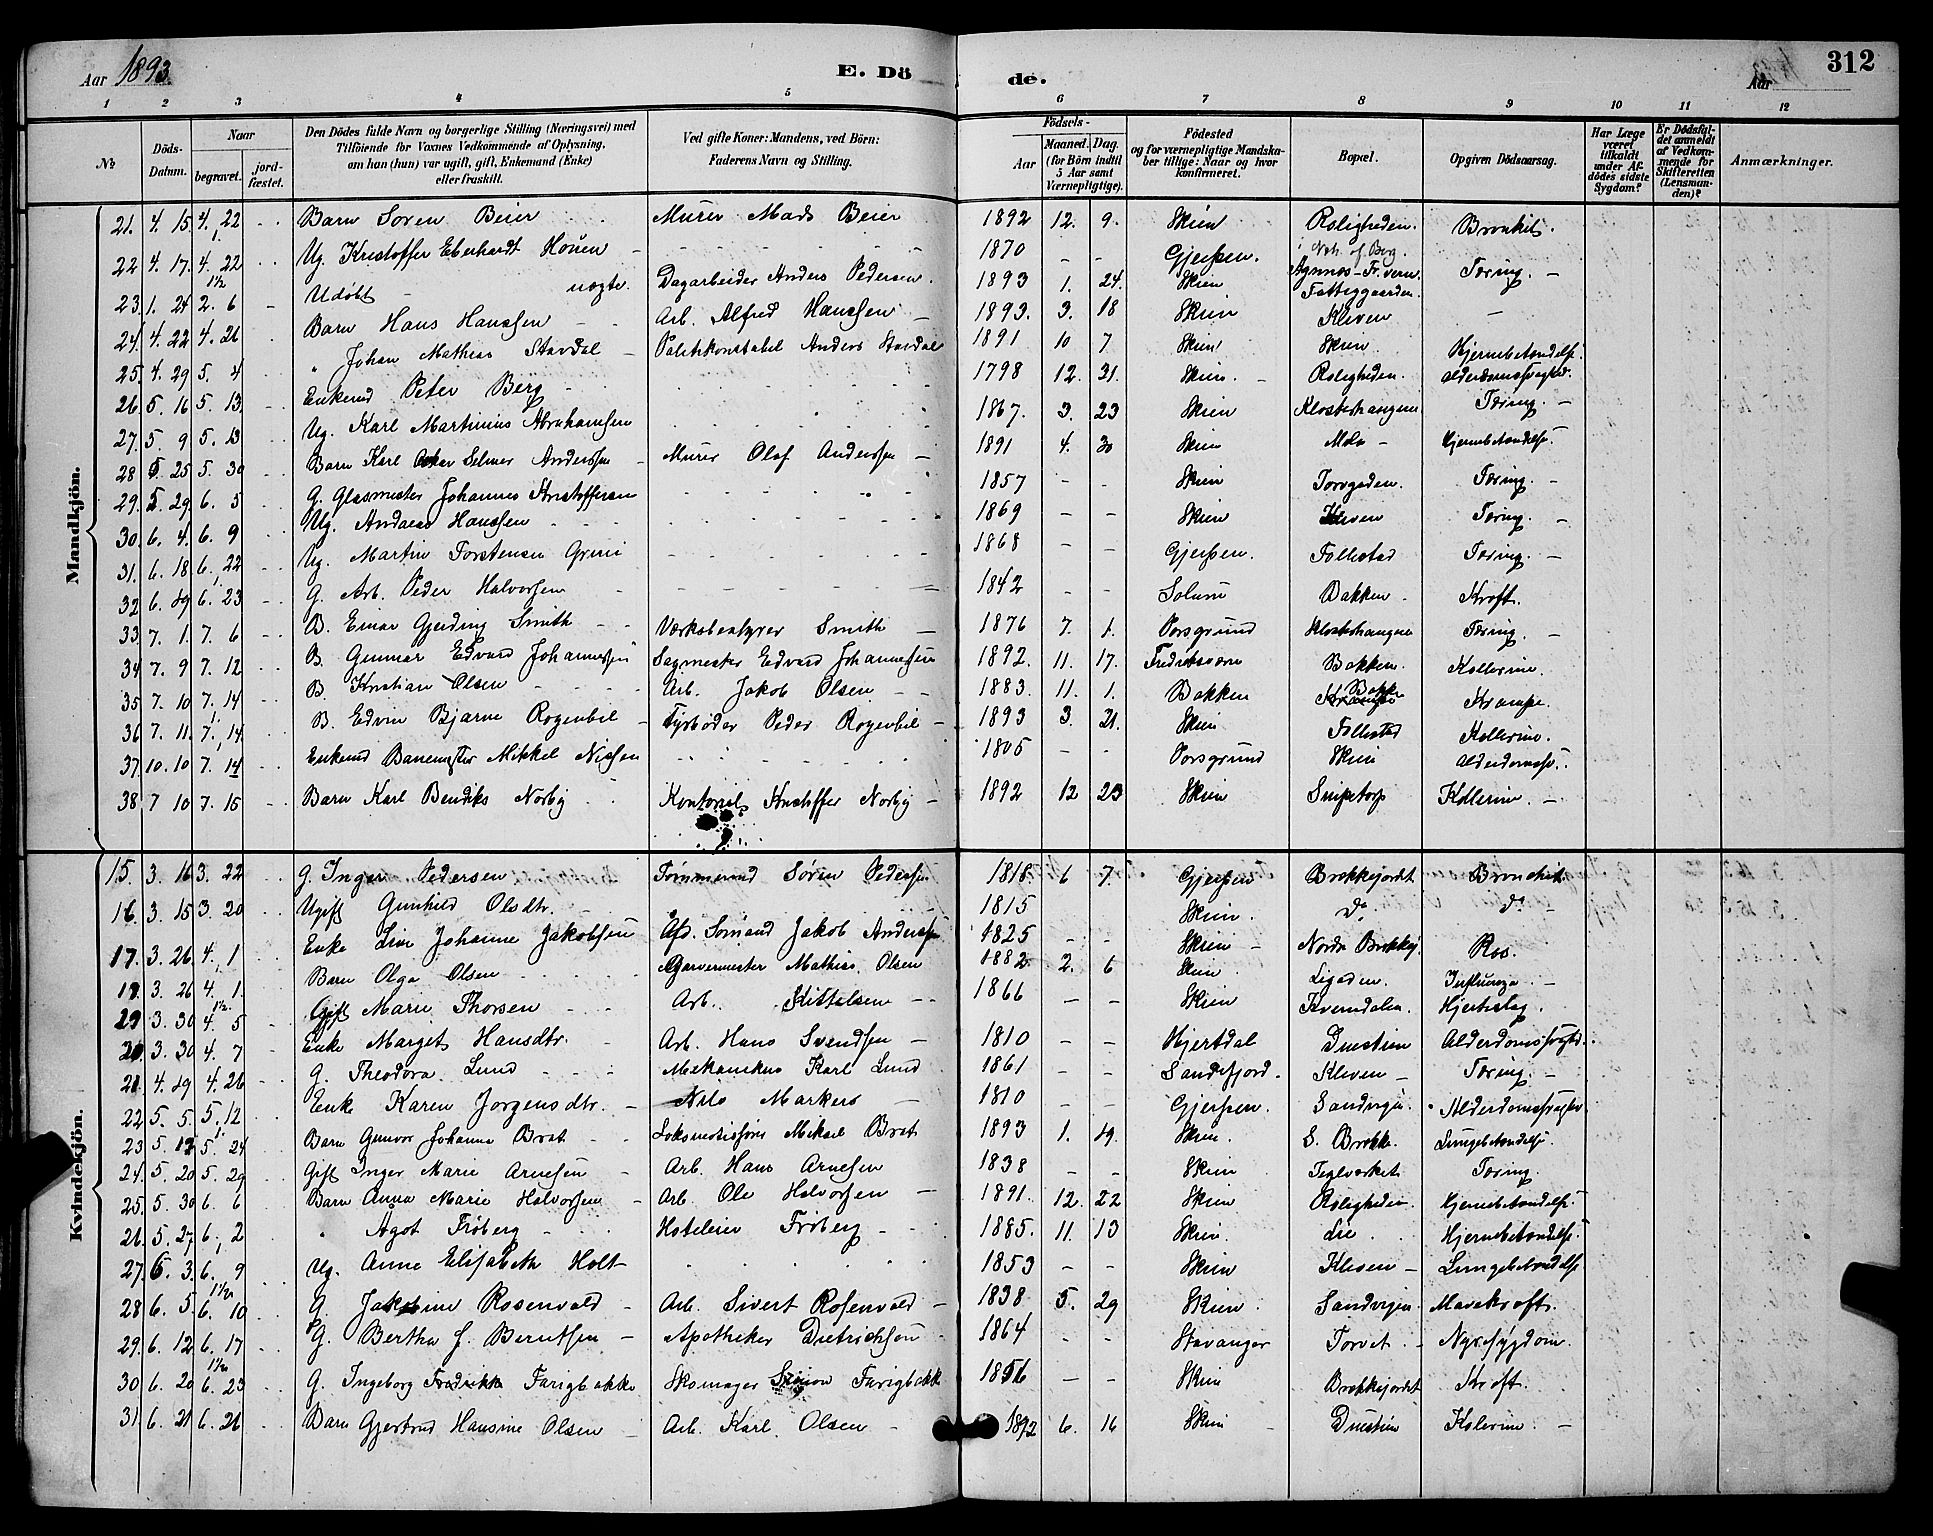 Aar 1893. E. Dö de. Aar 312
1 2 3 4 5 6 7 8 9 10 11 12
No Döds-Datum. Naar begravet. jordfæstet. Den Dödes fulde Navn og borgerlige Stilling (Næringsvei) med Tilföiende for Voxnes Vedkommende af Oplysning, om han (hun) var ugift, gift, Enkemand (Enke) eller fraskilt. Ved gifte Koner: Mandens, ved Börn: Faderens Navn og Stilling. Födsels- Aar Maaned. Dag. (for Börn indtil 5 Aar samt Værnepligtige). Födested og for værnepligtige Mandskaber tillige: Naar og hvor konfirmeret. Bopæl. Opgiven Dödsaarsag. Har Læge været tilkaldt under Afdödes sidste Sygdom? Er Dödsfaldet anmeldt af Vedkommende for Skifteretten (Lensmanden)? Anmærkninger.
Mandkjön.
21. 4. 15. 4. 22 Barn Soren Beier Murer Mads Beier 1892 12. 9. Skien Roligheden. Bronkit.
22 4. 17. 4. 22 Ug. Kristoffer Eberhardt Houen 1870 Gjerpen. Tæring.
23. 1. 24 2. 6 Udöbt uægte. Dagarbeider Anders Pedersen. 1893 1. 24. Skien Fattiggaarden.
24. 4. 22 4. 26 Barn Hans Hanssen Arb. Alfred Hanssen 1893. 3. 18 Skien Kleven
25. 4. 29 5. 4 " Johan Mathias Stavdal Politikonstabel Anders Stavdal 1891 10 7 Skien Skien Hjernebetændelse.
26 5. 16 5. 13 Enkemd Peter Berg 1798 12. 31. Skien. Roligheden. Alderdomssvaghed.
27. 5 9 5. 13 Ug. Karl Martinius Abrahamsen 1867. 3. 23 Skien Klosterhaugen Tæring.
28 5. 25 5. 30 Barn Karl Oskar Selmer Anderssen Murer Olaf Anderssen 1891 4. 30 Skien Mæla Hjernebetændelse.
29. 5. 29 6. 5 G. Glasmester Johannes Kristoffersen 1857 Skien Torvgaden. Tæring.
30. 6. 4. 6. 9 Ug. Andreas Hanssen 1869 Skien Kleven Tæring.
31. 6. 18 6. 22 Ug. Martin Torstensen Grini 1868 Gjerpen. Follestad Tæring.
32 6. 19 6. 23 G. Arb. Peder Halvorsen 1842 Solum Bakken. Kræft.
33. 7. 1. 7. 6 B. Einar Gjerding Smith Værksbestyrer Smith 1876 7. 1. Porsgrund Klosterhaugen Tæring.
34 7. 9 7. 12 B. Gunnar Edvard Johannessen Sagmester Edvard Johannessen 1892. 11. 17. Fredriksværn Bakken. Kollerine.
35 7. 10 7. 14 B. Kristian Olsen Arb. Jakob Olsen 1883. 11. 1. Bakken Bakken Krampe.
36 7. 11. 7. 14 B. Edvin Bjarne Rogenbil Fyrbøder Peder Rogenbil 1893 3. 21. Skien Follestad Kollerine.
37. 10. 10 7. 14 Enkemd Banemester Mikkel Nielsen 1805 Porsgrund Skien Alderdomssv.
38. 7 10 7. 15 Barn Karl Bendiks Norby Kontorist Kristoffer Norby 1892 12 23 Skien Snipetorp Kollerine.
Kvindekjön.
15. 3. 16 3. 22 G. Inger Pedersen Tømmermd Sören Pedersen 1818. 6 7. Gjerpen Brekkejordet Bronchit.
16 3. 15 3. 20 Ugift Gunhild Olsdtr. 1815 Skien. do do
17. 3. 26. 4. 1 Enke Live Johanne Jakobsen Afd. Sømand Jakob Anderssen 1825 Skien Nordre Brekkej. Ros.
18. 3. 26 4. 1. Barn Olga Olsen Garvermester Mathias Olsen 1882 2. 6 Skien Ligaden. Influenza.
19 3. 30 4. 5 Gift Marie Thorsen Arb. Kittelsen 1866 Skien Tverrdalen. Hjerteslag.
20. 3. 30 4. 7 Enke Margit Hansdtr. Arb. Hans Svendsen 1810 Hjertdal Duestien Alderdomssvaghd.
21. 4. 19 4. 26 G. Theodora Lund Mekanikus Karl Lund 1861 Sandefjord. Kleven Tæring.
22 5. 5. 5. 12 Enke Karen Jorgensdtr. Nils Markers 1810 Gjerpen. Sandvigen. Alderdomssvaghed
23 5. 19 5. 24 Barn Gunvor Johanne Brat Lokomotivförer Mikael Brat 1893 1. 19. Skien. S. Brekke. Lungebetændelse.
24. 5. 20 5. 29 Gift Inger Marie Arnesen Arb. Hans Arnesen 1838 Skien Teglværket Tæring.
25. 5. 30 6. 6 Barn Anna Marie Halvorsen Arb. Ole Halvorsen 1891. 12. 22 Skien Roligheden. Hjernebetændelse.
26. 5. 27 6. 2 " Agot Fröberg Hoteleier Fröberg 1885. 11. 13 Skien. Lie Hjernebetændelse.
27. 6. 3. 6. 9 Ug. Anne Elisabeth Holt 1853 Skien Kleven Lungebetændelse
28 6. 5 6. 10 G. Jakobine Rosenvold Arb. Sivert Rosenvold 1838 5. 29 Skien Sandvigen Mavekræft.
29. 6. 12 6. 17 G. Bertha J. Berntsen Apotheker Dietrichson 1864 Stavanger Torvet Nyresygdom.
30 6. 20 6. 23 G. Ingeborg Fredrikke Farigbakke Skomager Simon Farigbakke 1856 Skien Brekkejordet Kræft.
31 6. 21 6. 26 Barn Gjertrud Hansine Olsen Arb. Karl Olsen 1892 6. 16 Skien Duestien Kolerine.